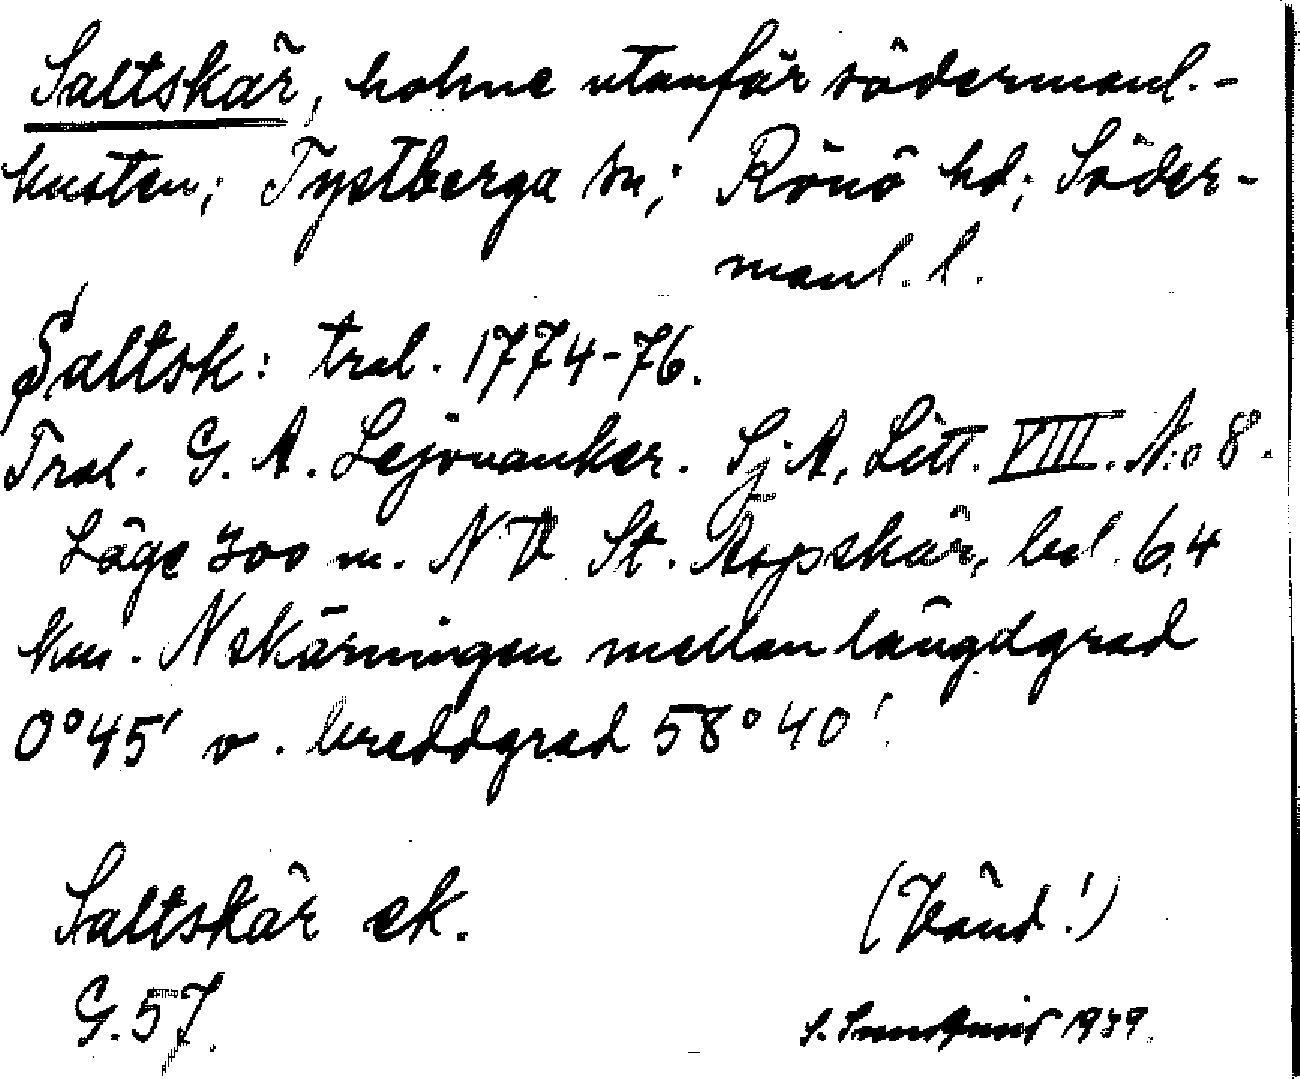 Saltskär, holme utanför södermanl.-
kusten; Tystberga sn; Rönö hd; Söder-
manl. l.
Saltsk: trol. 1774-76.
Trol. G. A. Lejonanker. Sj. A, Litt. VIII. No 8.
Läge 300 m. NV St. Aspskär, bel. 6,4
km. N skärningen mellan längdgrad
0°45' o. breddgrad 58°40'.
Saltskär ek.
G. 57.
(Vänd!)
S. 1939.